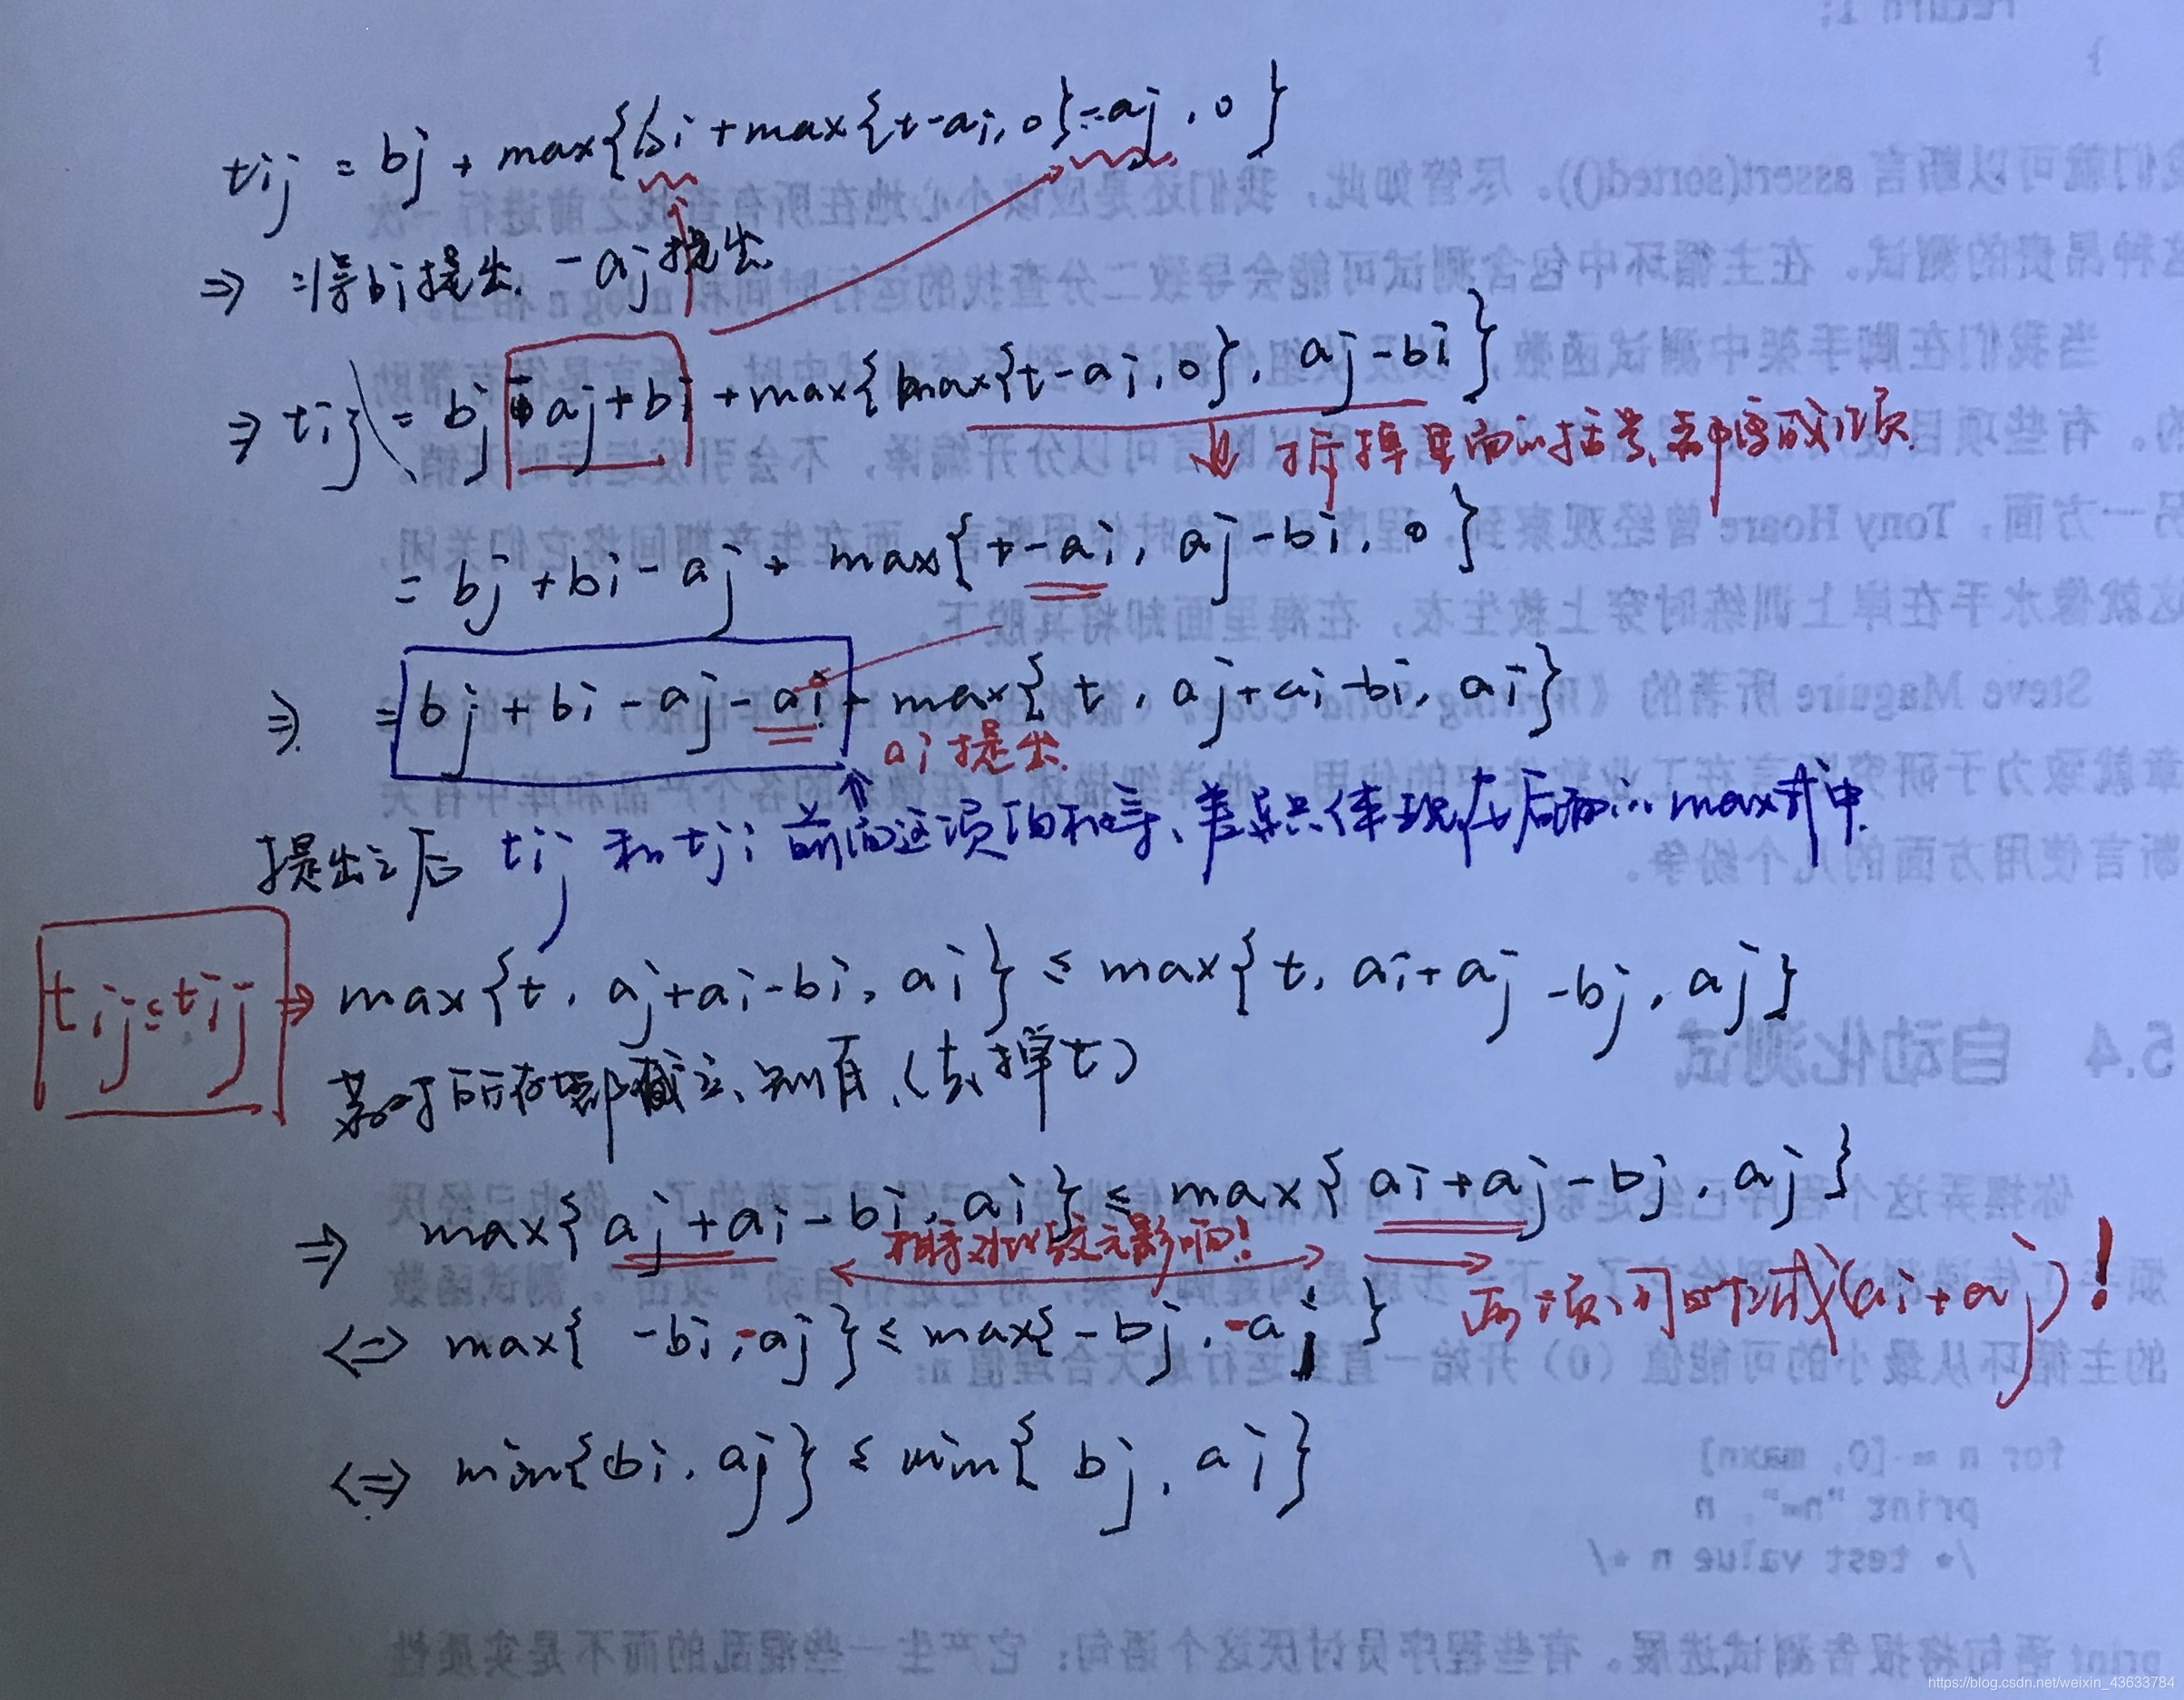 tij = bj + max{bi + max{t-ai, 0} - aj, 0}
⇒ 将bi提出, -aj提出.
⇒ tij = bj - aj + bi + max{max{t-ai, 0}, aj-bi}
拆掉里面的括号,
= bj + bi - aj + max{t-ai, aj-bi, 0}
⇒ = bj + bi - aj - ai + max{t, aj+ai-bi, ai}
ai提出.
提出之后 tij 和 tji 前面这项相等、差异只体现在后面的max式中.
tij ≤ tij ⇒ max{t, aj+ai-bi, ai} ≤ max{t, ai+aj-bj, aj}
若对所有t都成立、则有,(去掉t)
⇒ max{aj+ai-bi, ai} ≤ max{ai+aj-bj, aj}
相等对比较无影响!
两项同时减(ai+aj)!
<=> max{-bi, -aj} ≤ max{-bj, -aj}
<=> min{bi, aj} ≤ min{bj, ai}
return 1;
}
我们就可以断言 assert(sorted())。尽管如此，我们还是应该小心地在所有查找之前进行一次
这种昂贵的测试。在主循环中包含测试可能会导致二分查找的运行时间和 nlog n 相当。
当我们在脚手架中测试函数，
的。有些项目 可以分开编译，不会引发运行时开销。
另一方面，Tony Hoare 曾经观察到，程序员 测试时使用断言，而在生产期间将它们关闭，
这就像水手在岸上训练时穿上救生衣，在海里面却将其脱下。
Steve Maguire 所著的《
章就致力于研究断言在工业软件中的使用。 各个产品和库中有关
断言使用方面的几个纷争。
5.4 自动化测试
你摆弄这个程序已经足够多了，
自动“攻击”。测试函数
的主循环从最小的可能值（0）开始一直到运行最大合理值 n：
for n = [0, maxn]
print "n=", n
/* test value n */
print 语句将报告测试进展。有些程序员讨厌这个语句：它产生一些混乱的而不是实质性
https://blog.csdn.net/weixin_43633784